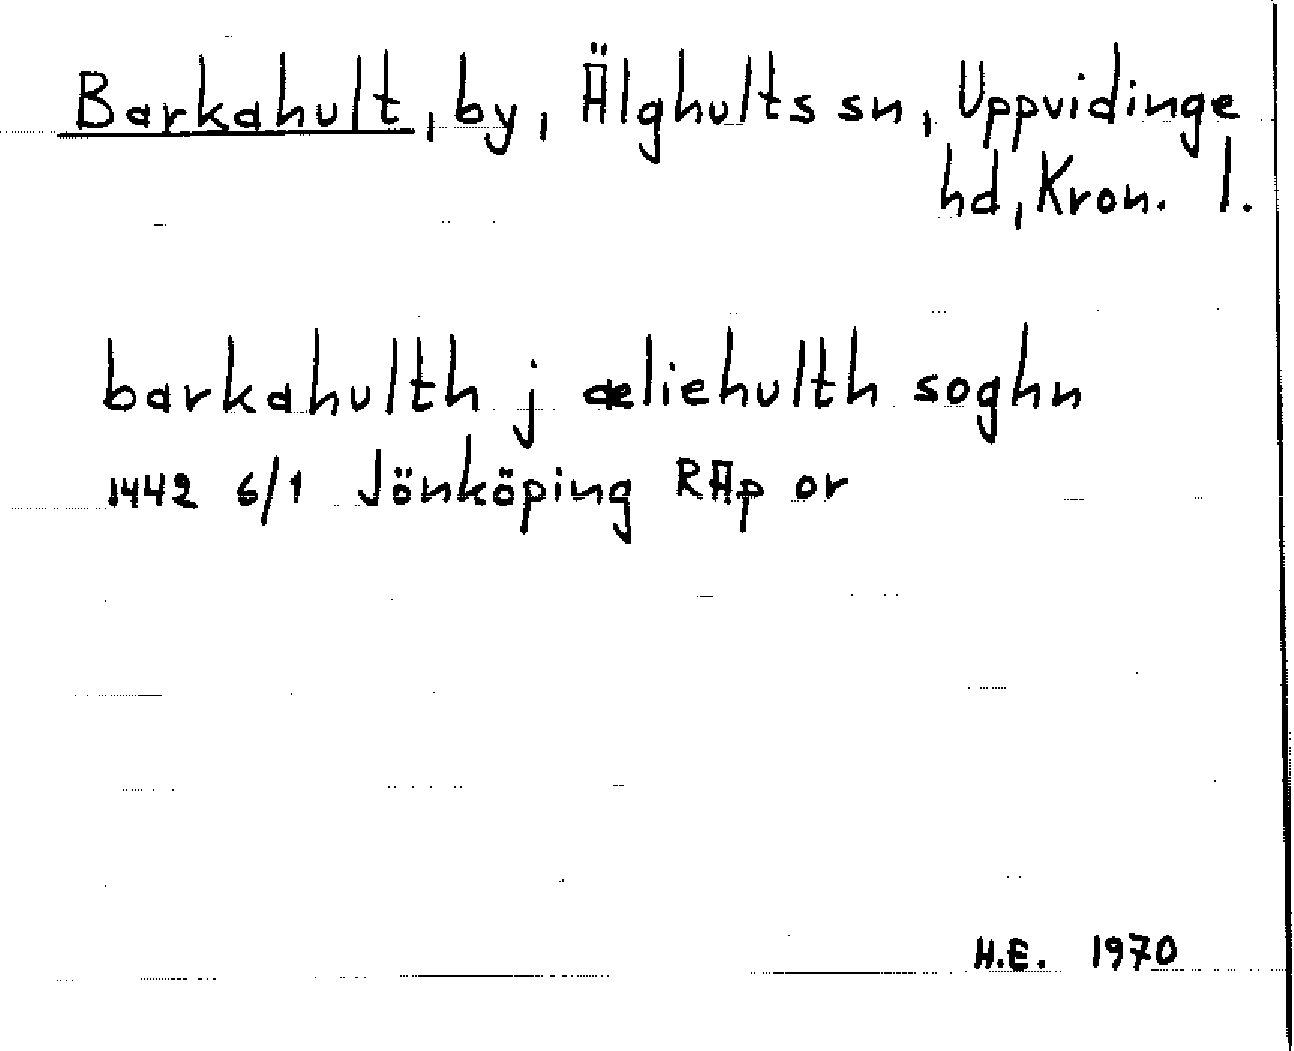 Barkahult, by, Älghults sn, Uppvidinge
hd, Kron. l.
barkahulth j æliehulth soghn
1442 6/1 Jönköping RAp or
H.E. 1970